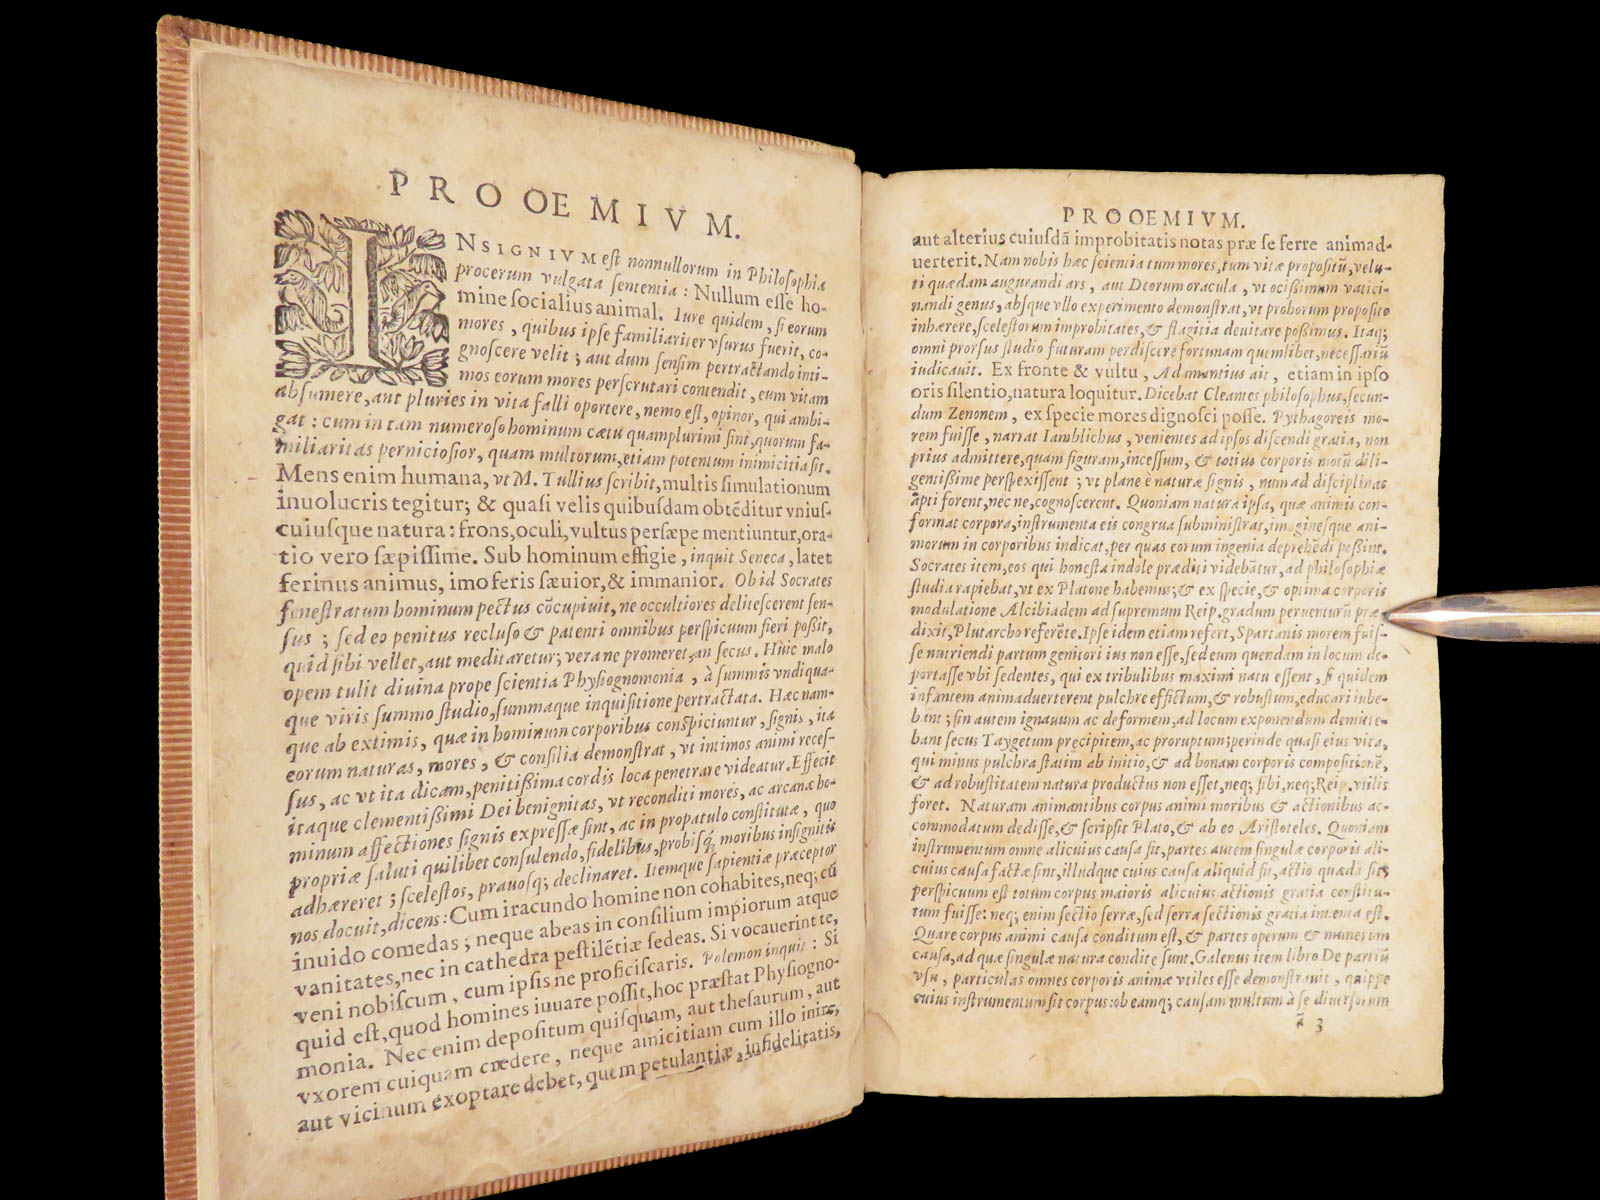 PROOEMIVM.
INSIGNIVM est nonnullorum in Philosophia
procerum vulgata sententia: Nullum esse ho-
mine socialius animal. Iure quidem, si eorum
mores, quibus ipse familiariter vsurus fuerit, co-
gnoscere velit; aut dum sensim pertractando inti-
mos eorum mores perscrutari contendit, eum vitam
absumere, aut pluries in vita falli oportere, nemo est, opinor, qui ambi-
gat: cum in tam numeroso hominum cætu quamplurimi sint, quorum fa-
miliaritas perniciosior, quam multorum, etiam potentum inimicitia sit.
Mens enim humana, vt M. Tullius scribit, multis simulationum
inuolucris tegitur; & quasi velis quibusdam obtẽditur vnius-
cuiusque natura: frons, oculi, vultus persæpe mentiuntur, ora-
tio vero sæpissime. Sub hominum effigie, inquit Seneca, latet
ferinus animus, imo feris sæuior, & immanior. Ob id Socrates
fenestratum hominum pectus cũcupiuit, ne occultiores delitescerent sen-
sus; sed eo penitus recluso & patenti omnibus perspicuum fieri possit,
quid sibi vellet, aut meditaretur; vera ne promeret, an secus. Huic malo
opem tulit diuina prope scientia Physiognomonia, à summis vndiqua-
que viris summo studio, summaque inquisitione pertractata. Hæc nam-
que ab extimis, quæ in hominum corporibus conspiciuntur, signis, ita
eorum naturas, mores, & consilia demonstrat, vt intimos animi reces-
sus, ac vt ita dicam, penitissima cordis loca penetrare videatur. Effecit
itaque clementissimi Dei benignitas, vt reconditi mores, ac arcanæ ho-
minum affectiones signis expressæ sint, ac in propatulo constitutæ, quo
propriæ saluti quilibet consulendo, fidelibus, probisq; moribus insignitis
adhæreret; scelestos, prauosq; declinaret. Itemque sapientiæ præceptor
nos docuit, dicens: Cum iracundo homine non cohabites, neq; cũ
inuido comedas; neque abeas in consilium impiorum atque
vanitates, nec in cathedra pestilẽtiæ sedeas. Si vocauerint te,
veni nobiscum, cum ipsis ne proficiscaris. Polemon inquit: Si
quid est, quod homines iuuare possit, hoc præstat Physiogno-
monia. Nec enim depositum quisquam, aut thesaurum, aut
vxorem cuiquam credere, neque amicitiam cum illo inire,
aut vicinum exoptare debet, quem petulantiæ, infidelitatis,
PROOEMIVM.
aut alterius cuiusdã improbitatis notas præ se ferre animad-
uerterit. Nam nobis hæc scientia tum mores, tum vitæ propositũ, velu-
ti quædam augurandi ars, aut Deorum oracula, vt ocissimum vatici-
nandi genus, absque vllo experimento demonstrat, vt proborum proposito
inhærere, scelestorum improbitates, & flagitia deuitare possimus. Itaq;
omni prorsus studio futuram perdiscere fortunam quemlibet, necessariũ
iudicauit. Ex fronte & vultu, Adamantius ait, etiam in ipso
oris silentio, natura loquitur. Dicebat Cleantes philosophus, secun-
dum Zenonem, ex specie mores dignosci posse. Pythagoreis mo-
rem fuisse, narrat Iamblichus, venientes ad ipsos discendi gratia, non
prius admittere, quam figuram, incessum, & totius corporis motũ dili-
gentissime perspexissent; vt plane è naturæ signis, num ad disciplinas
apti forent, nec ne, cognoscerent. Quoniam natura ipsa, quæ animis con-
format corpora, instrumenta eis congrua subministrat, imaginesque ani-
morum in corporibus indicat, per quas eorum ingenia deprehẽdi possint.
Socrates item, eos qui honesta indole præditi videbãtur, ad philosophiæ
studia rapiebat, vt ex Platone habemus; & ex specie, & optima corporis
modulatione Alcibiadem ad supremum Reip. gradum peruenturũ præ-
dixit, Plutarcho referẽte. Ipse idem etiam refert, Spartanis morem fuis-
se nutriendi partum genitori ius non esse, sed eum quendam in locum de-
portasse vbi sedentes, qui ex tribulibus maximi natu essent, si quidem
infantem animaduerterent pulchre effictum, & robustum, educari iube-
bant; sin autem ignauum ac deformem, ad locum exponendum demitte-
bant secus Taygetum præcipitem, ac proruptum; perinde quasi eius vita,
qui minus pulchra statim ab initio, & ad bonam corporis compositionẽ,
& ad robustitatem natura productus non esset, neq; sibi, neq; Reip. vtilis
foret. Naturam animantibus corpus animi moribus & actionibus ac-
commodatum dedisse, & scripsit Plato, & ab eo Aristoteles. Quoniam
instrumentum omne alicuius causa sit, partes autem singulæ corporis ali-
cuius causa factæ sint, illudque cuius causa aliquid sit, actio quæda sit,
perspicuum est totum corpus maioris alicuius actionis gratia constitu-
tum fuisse: neq; enim sectio serræ, sed serra sectionis gratia intenta est.
Quare corpus animi causa conditum est, & partes operum & munerum
causa, ad quæ singulæ natura conditę sunt. Galenus item libro De partiũ
vsu, particulas omnes corporis animæ vtiles esse demonstrauit, quippe
cuius instrumentum sit corpus: ob eamq; causam multum à se diuersorum
ã 3